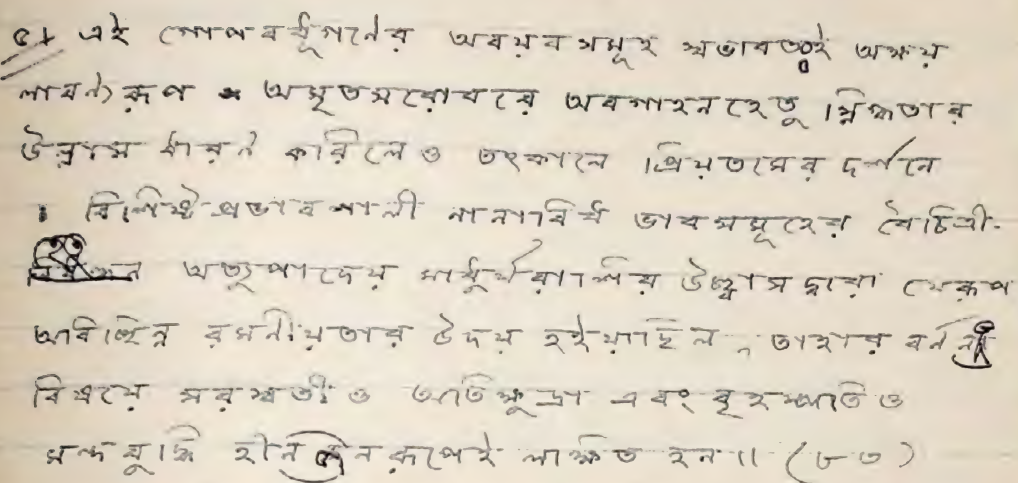 ৫। এই গোপবধূগণের অবয়বসমূহ স্বভাবতঃই অক্ষয়
লাবণ্যরূপ অমৃতসরোবরে অবগাহনহেতু স্নিগ্ধতার
উল্লাস ধারণ করিলেও তৎকালে প্রিয়তমের দর্শনে
বিশিষ্টপ্রভাবশালী নানাবিধ ভাবসমূহের বৈচিত্রী-
অত্যুপাদেয় মাধুর্য্যরাশির উচ্ছ্বাসদ্বারা যেরূপ
অবিচ্ছিন্ন রমণীয়তার উদয় হইয়াছিল, তাহার বর্ণনা
বিষয়ে সরস্বতীও অতিক্ষুদ্রা এবং বৃহস্পতিও
মন্দবুদ্ধি হীন রূপেই লক্ষিত হন॥ (৮৩)